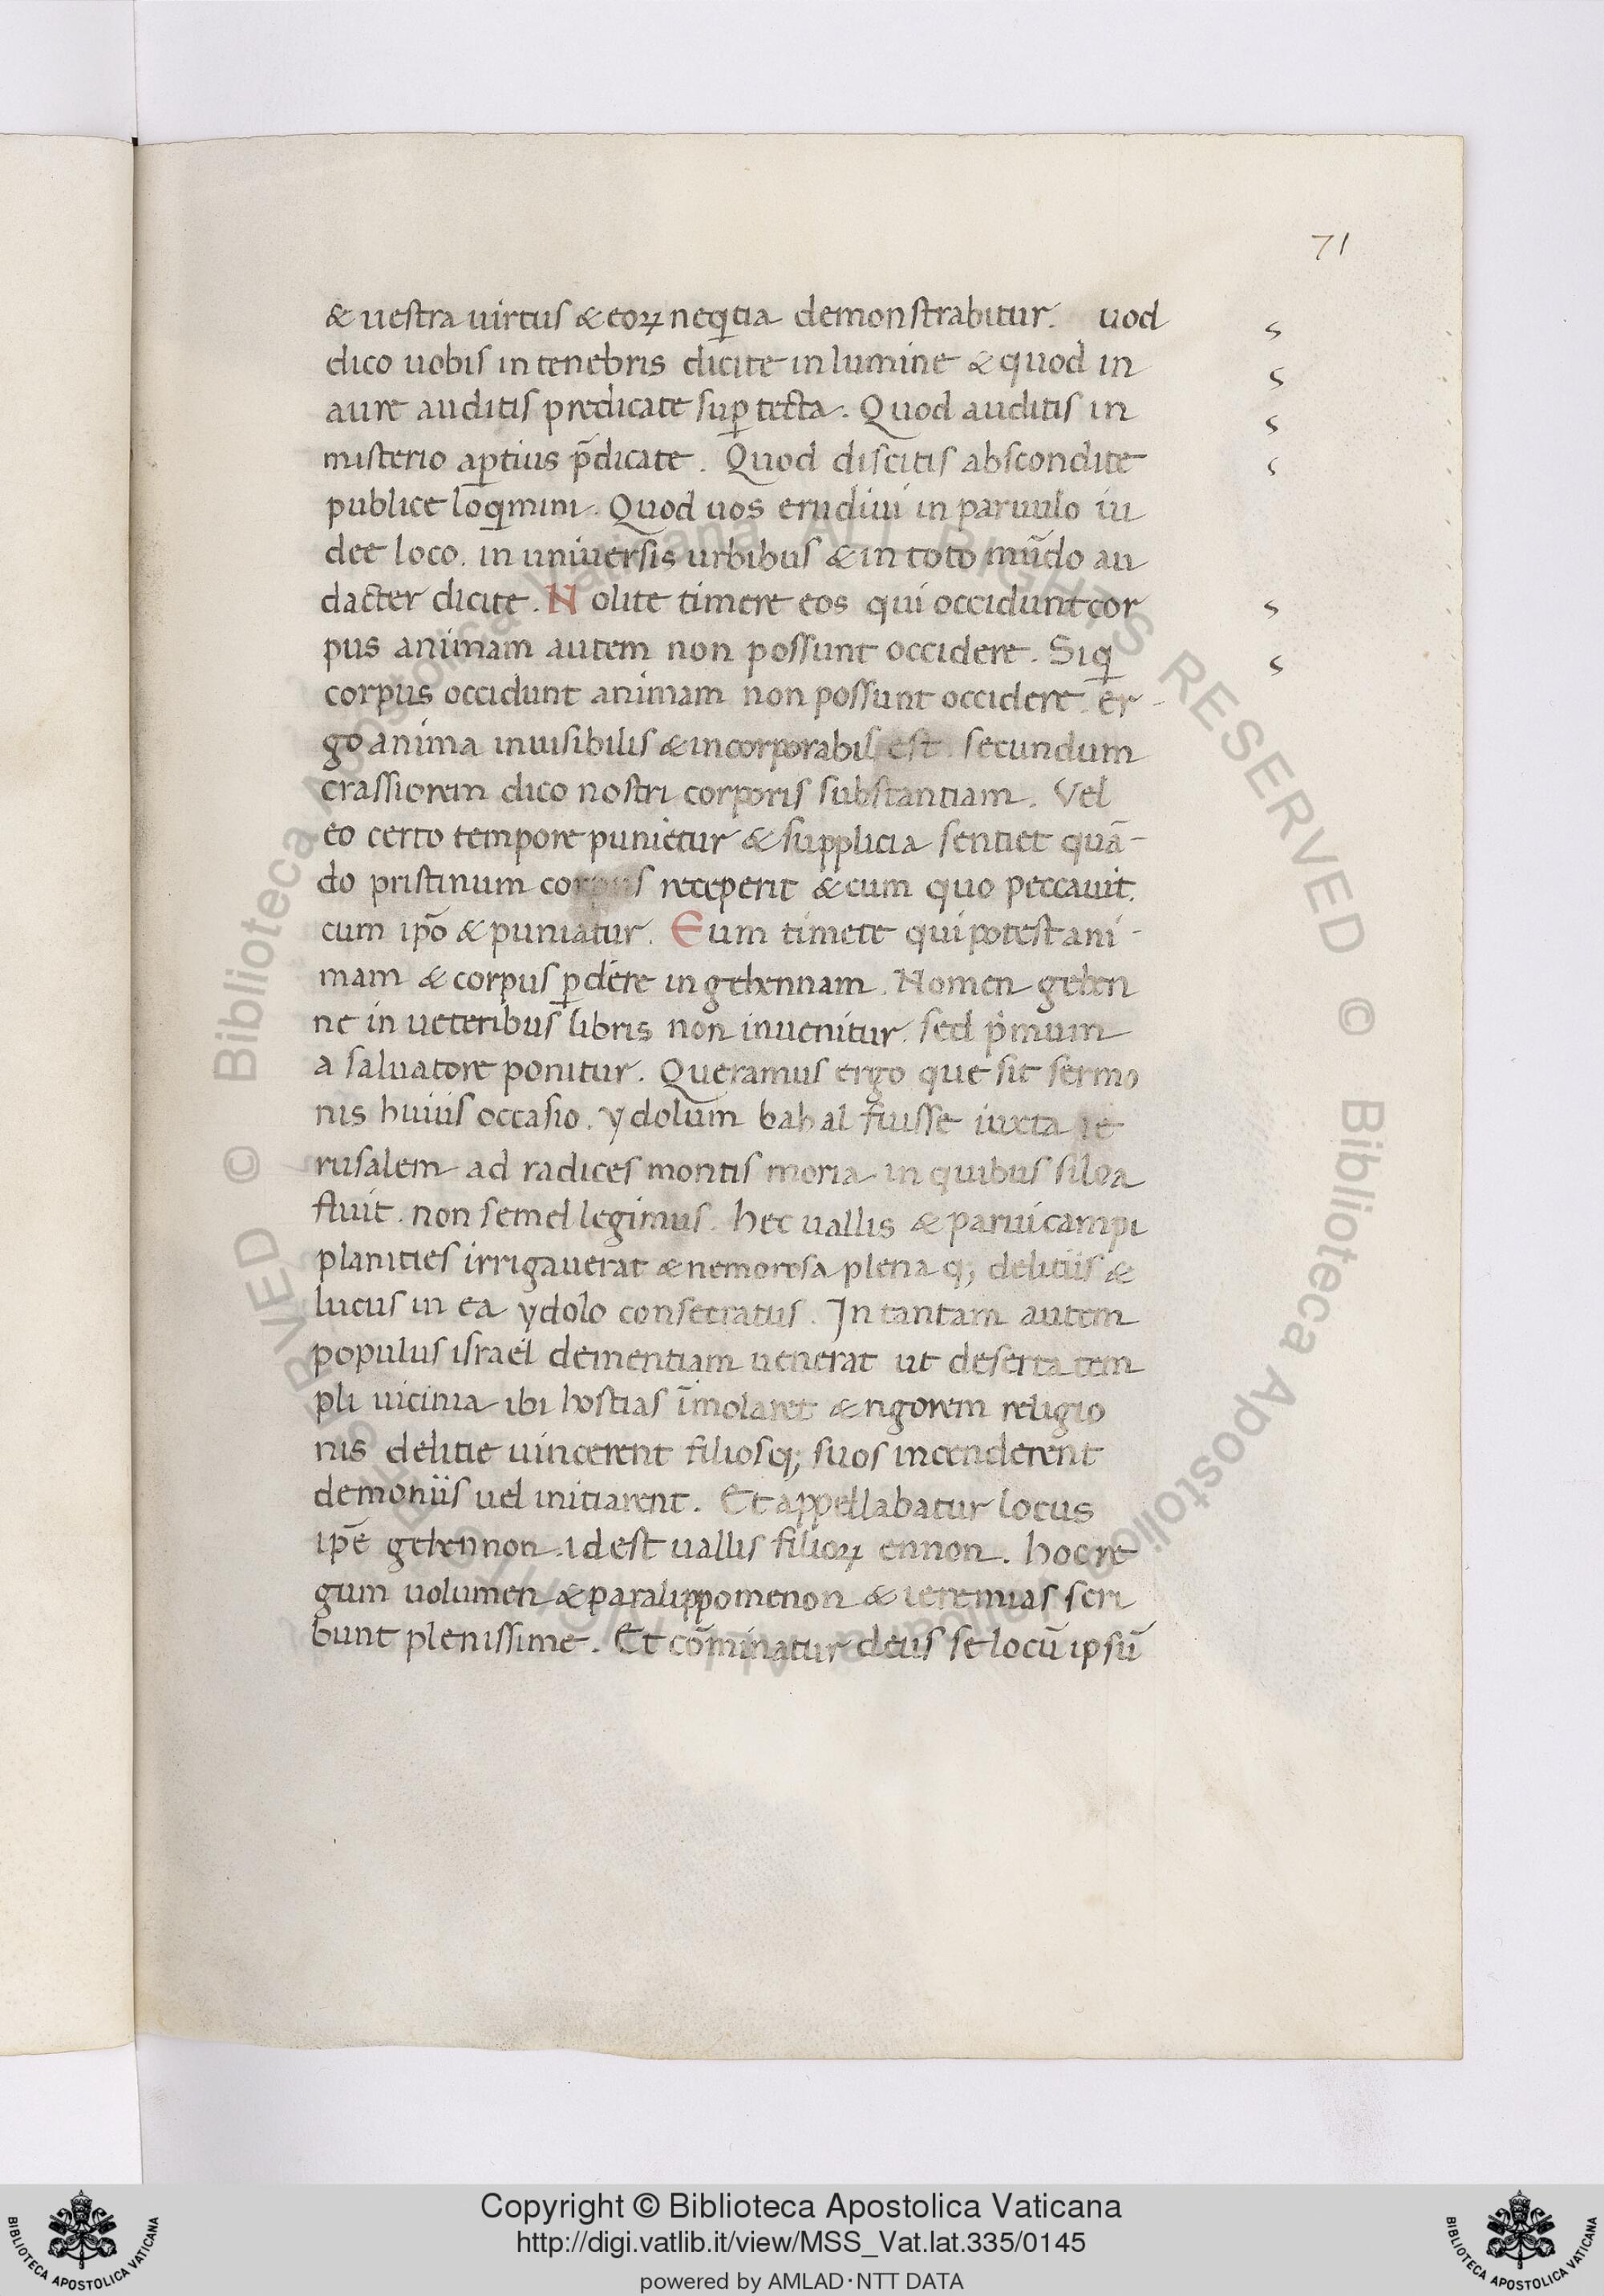 71
& uestra uirtus & eoꝝ neqͥtia demonstrabitur. uod
dico uobis in tenebris dicite in lumine & quod in
aure auditis predicate suꝑ tecta. Quod auditis in
misterio aꝑtius p̄dicate. Quod discitis abscondite
publice loqͥmini. Quod uos erudiui in paruulo iu
dee loco. in uniuersis urbibus & in toto mūdo au
dacter dicite. Nolite timere eos qui occidunt cor
pus animam autem non possunt occidere. Siqͥ
corpus occidunt animam non possunt occidere. er-
go anima inuisibilis & incorporabilis est. secundum
crassiorem dico nostri corporis substantiam. Vel
eo certo tempore punietur & supplicia sentiet quā-
do pristinum corpus receperit & cum quo peccauit.
cum ip̄o & puniatur. Eum timete qui potest ani-
mam & corpus ꝑdere in gehennam. Nomen gehen
ne in ueteribus libris non inuenitur. sed pͥmum
a saluatore ponitur. Queramus ergo que sit sermo
nis huius occasio. ydolum bahal fuisse iuxta ie
rusalem ad radices montis moria in quibus siloa
fluit. non semel legimus. hec uallis & parui campi
planities irrigauerat & nemorosa plena qꝫ delitiis &
lucus in ea ydolo consecratus. In tantam autem
populus israel dementiam uenerat ut deserta tem
pli uicinia ibi hostias īmolaret & rigorem religio
nis delitie uincerent filiosqꝫ suos incenderent
demoniis uel initiarent. Et appellabatur locus
ip̄e gehennon. id est uallis filioꝝ ennon. hoc re
gum uolumen & paralippomenon & ieremias scri
bunt plenissime. Et com̄inatur deus se locū ipsū
Copyright © Biblioteca Apostolica Vaticana
http://digi.vatlib.it/view/MSS_Vat.lat.335/0145
powered by AMLAD·NTT DATA